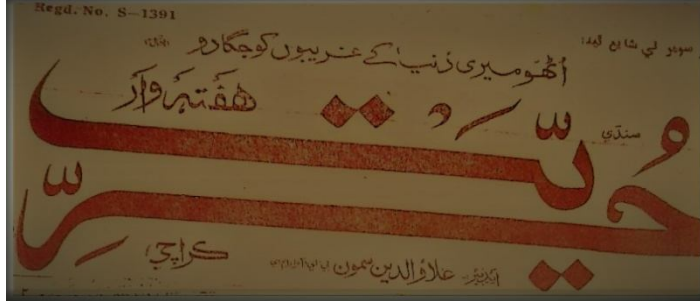 Regd. No. S—1391
سومر تي شايع ٿيندڙ
اُٹھو میری دنیا کے غریبوں کو جگا دو
هفتہ وار
سنڌي
حُرِّيت
ڪراچي
ايڊيٽر علاؤالدين سمون